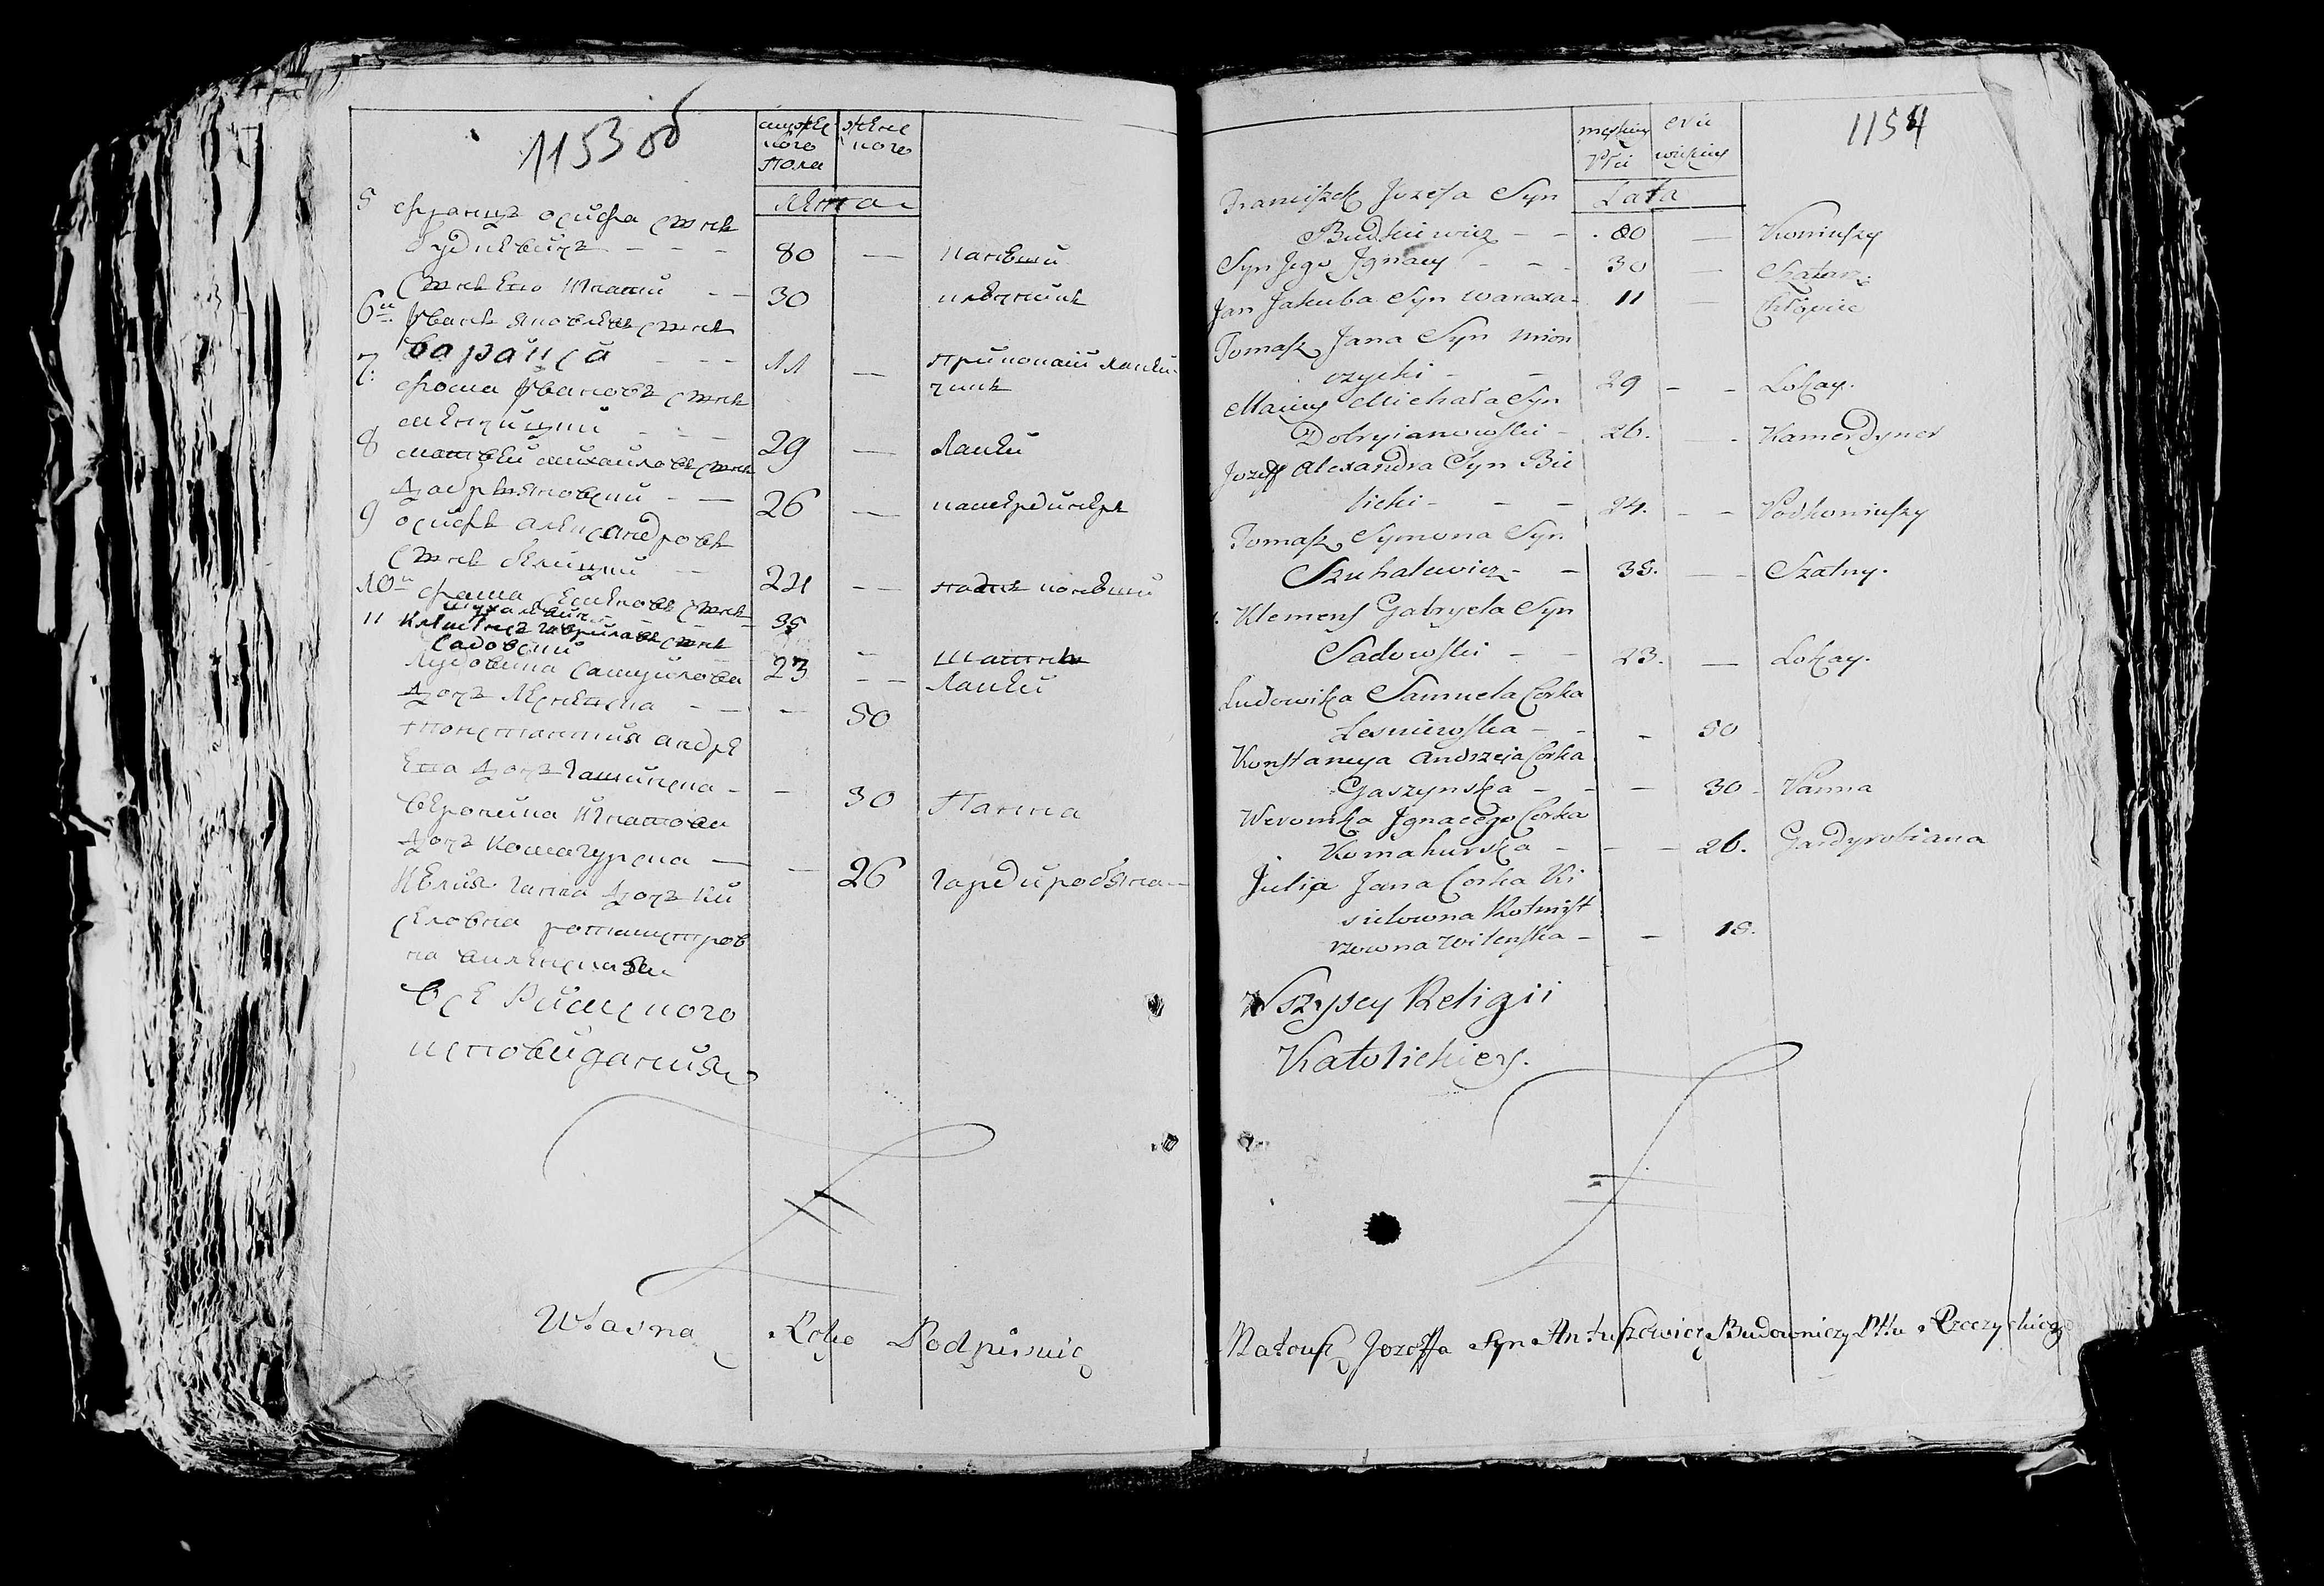 1153 об
мужес
кого
пола
женс
кого
Лета
5 Францъ осифа сынъ
Будкевичъ - - -
80 — конюший
сынъ Его Игнатий - -
30
ключникъ
6й Иванъ яковлевъ сынъ
Варакса - - -
11 —
7. Фома Ивановъ сынъ
29 — Лакей
8 матвей михайловъ сынъ
Добрияновский - —
26 — камердинеръ
9 осифъ александровъ
сынъ белицкий —
24 - - подъ конюший
10й Фома Семеновъ сынъ
Шухалевичъ
35
11 Клеменсъ Гаврилавъ сынъ
Садовский
23 - - Лакей
Лудовика самуилова
дочъ Лесневска - — —
50
Констанция андре
ева дочъ Гашинска - -
30 Панна
Вероника Игнатова
дочъ Комагурска — —
26 гардиробяна —
Юлия Яна дочъ Ки
селовна ротмистров
на виленская
Все Римского
исповидания
Własną Ręką Podpisuię
1154
męskiey
Płci
evu
wieskiey
Lata
Franciszek Jozefa Syn
Budkiewicz - - . 80 — Koniuszy
Syn Jego Ignacy - - . 30 —
Jan Jakuba Syn Waraxa - 11 — Chłopiec
Tomasz Jana Syn Mion
czycki - - 29 - - Lokay.
Maciey Michała Syn
Dobryianowski - 26. - - Kamerdyner
Jozeff Alexandra Syn Bie
licki - - - 24. - - Podkoniuszy
Tomasz Symona Syn
Szuhalewicz - - 35. - - Szatny.
Klemens Gabryela Syn
Sadowski - - 23. — Lokay.
Ludowika Samuela Corka
Lesniewska - - - 50
Konstancya Andrzeja Corka
Gaszynska - - — 30 - Panna
Weronika Ignacego Corka
Komahurska - - — 26. Gardyrobiana
Julija Jana Corka Ki
sielowna Rotmist
rzowna Wilenska - — 18.
Wszyscy Religii
Katolickiey.
Mateusz Jozeffa Syn Antuszewicz Budowniczy Pttu Rzeczyckiego